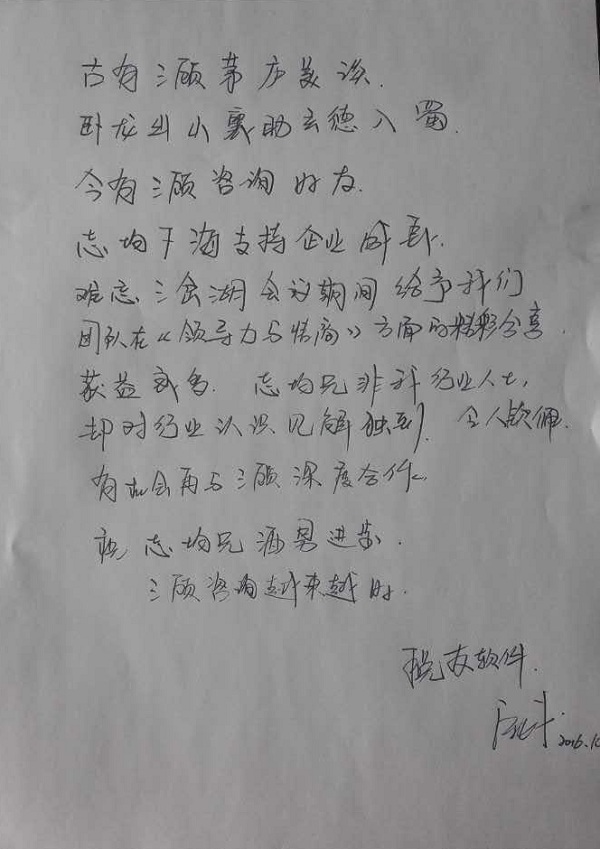 古有三顾茅庐美谈.
卧龙出山襄助玄德入蜀.
今有三顾咨询好友.
志均下海支持企业成长.
难忘三舍湖会议期间给予我们
团队在《领导力与情商》方面的精彩分享.
获益甚多. 志均兄非我行业人士,
却对行业认识见解独到, 令人钦佩.
有机会再与三顾深度合作.
祝 志均兄酒男进步.
三顾咨询越来越好.
税友软件.
2016.10